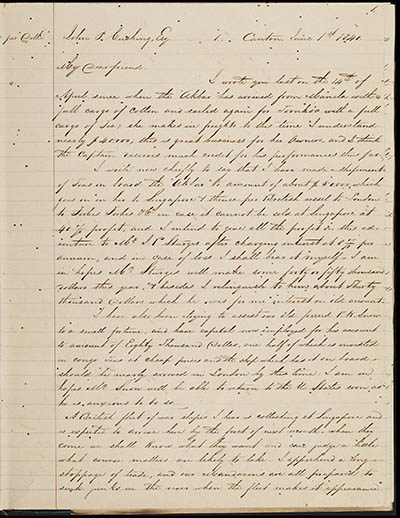 1
per Delhi
John P. Cushing, Esq 1. Canton June 1st 1840
My Dear friend.
I wrote you last on the 14th of
April since when the Akbar has arrived from Manila with a
full cargo of Cotton and sailed again for with a full
cargo of Tea; she makes in freights to this time I understand
nearly $40000, this is great business for her Owners, and I think
the Captain deserves much credit for his performances thus far.
I write now chiefly to say that I have made a shipment
of Teas on board the Akbar to amount of about $ 8000, which
goes on in her to Singapore & thence per British vessel to London
to Forbes Forbes & Co in case it cannot be sold at Singapore at
40 % profit, and I intend to give all the profit in this ad-
venture to Mr. J P Sturgis after charging interest at 6 % per
annum, and in case of loss I shall bear it myself. I am
in hopes Mr. Sturgis will make some forty or fifty thousand
dollars this year, & besides I relinquish to him about Thirty
thousand dollars which he owes for me interest on old account.
I have also been trying to assist our old friend P. W. Snow
to a small fortune, and have capital now employed for his account
to amount of Eighty Thousand Dollars, one half of which is invested
in congo teas at cheap prices and the ship which has it on board
should be nearly arrived in London by this time. I am in
hopes Mr. Snow will be able to return to the U. States soon as
he is anxious to do so.
A British fleet of war ships I hear is collecting at Singapore and
is expected to arrive here by the first of next month when they
come we shall know what they want and can judge a little
what course matters are likely to take. I apprehend a long
stoppage of trade, and our Mandarins are all prepared to
sink junks in the river when the fleet makes its appearance